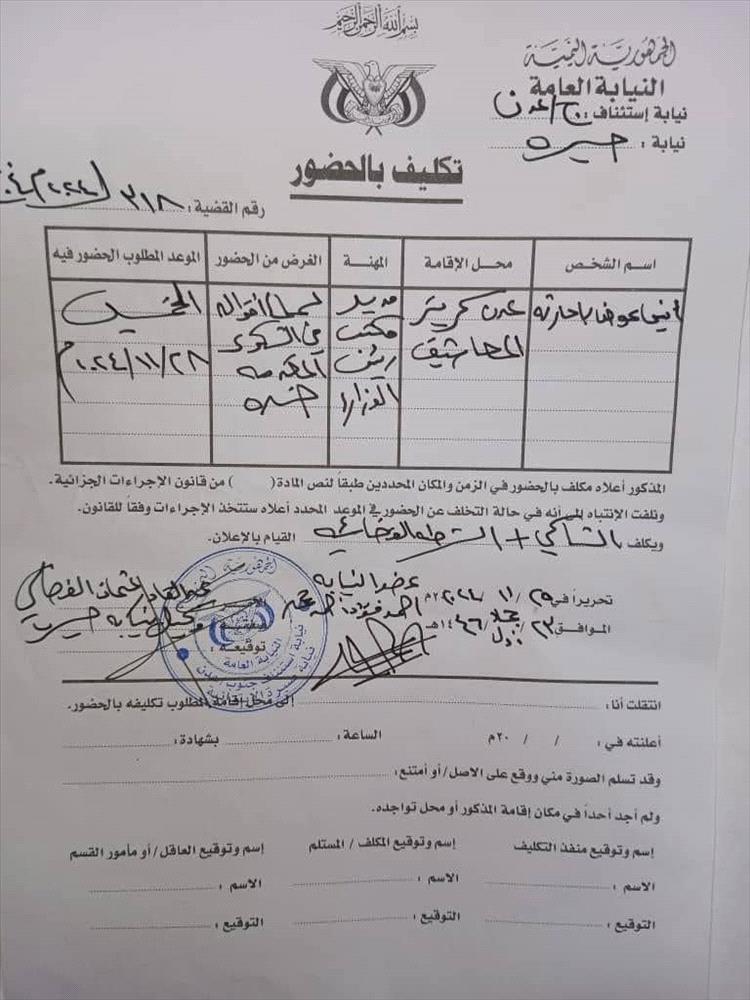 بسم الله الرحمن الرحيم
الجمهورية اليمنية
النيابة العامة
نيابة إستئناف : ج/عدن
نيابة : صيره
تكليف بالحضور
رقم القضية : ٣١٨ / ٢٠٢٤م
اسم الشخص | محل الإقامة | المهنة | الغرض من الحضور | الموعد المطلوب الحضور فيه
أنيس عوض باحارثه | عدن كريتر المعاشيق | مدير مكتب رئيس الوزراء | لسماع أقواله في الشكوى المقدمة ضده | الخميس ٢٠٢٤/١١/٢٨م
المذكور أعلاه مكلف بالحضور في الزمن والمكان المحددين طبقاً لنص المادة ( ) من قانون الإجراءات الجزائية.
ونلفت الإنتباه إلى أنه في حالة التخلف عن الحضور في الموعد المحدد أعلاه ستتخذ الإجراءات وفقاً للقانون.
ويكلف الشاكي + الشرطة القضائية القيام بالإعلان.
تحريراً في ٢٥/ ١١ / ٢٠٢٤م
الموافق ٢٣/ جماد أول / ١٤٤٦هـ
عضو النيابة
وكيل نيابة صيره
توقيعه :
الجمهورية اليمنية
النيابة العامة
نيابة استئناف جنوب عدن
نيابة صيرة الابتدائية
انتقلت أنا : إلى محل إقامة المطلوب تكليفه بالحضور.
أعلنته في : / / ٢٠م الساعة : بشهادة :
وقد تسلم الصورة مني ووقع على الاصل/أو أمتنع :
ولم أجد أحداً في مكان إقامة المذكور أو محل تواجده.
إسم وتوقيع منفذ التكليف إسم وتوقيع المكلف / المستلم إسم وتوقيع العاقل/أو مأمور القسم
الاسم : الاسم : الاسم :
التوقيع : التوقيع : التوقيع :